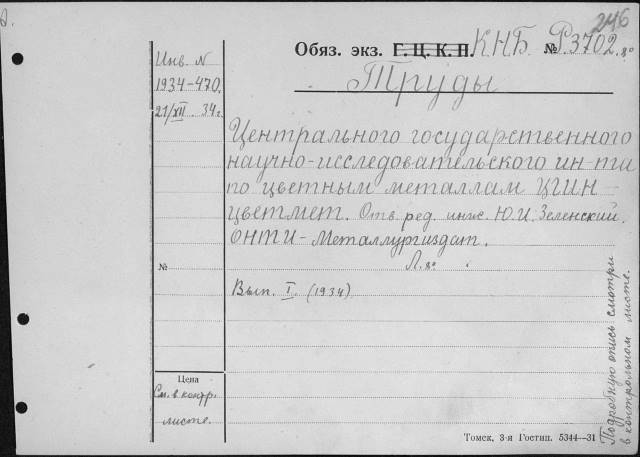 246
Обяз. экз. Г.Ц.К.П. КНБ. № Р.3702.8°
Труды
Инв. N
1934-470.
21/XII. 34г.
Центрального государственного
научно-исследовательского ин-та
по цветным металлам ЦГИН
цветмет. Отв. ред. инж. Ю.И. Зеленский.
ОНТИ-Металлургиздат.
Л. 8°
№
Вып. I. (1934)
Цена
См. в контр.
листе.
Подробную опись смотри
в контрольном листе.
Томск, 3-я Гостип. 5344—31